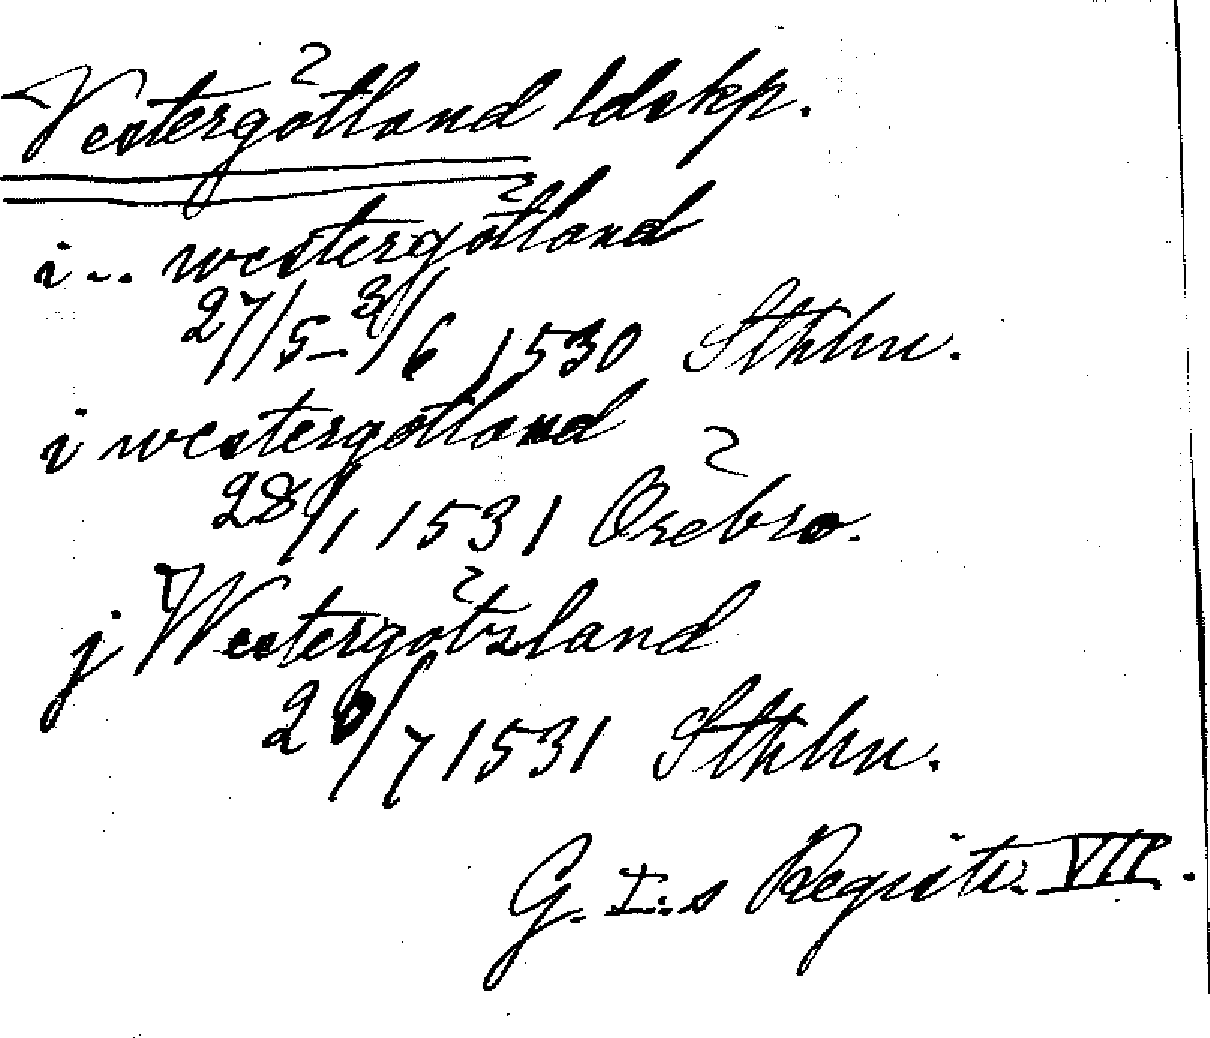 Vestergötland ldskp.
i .. westergötland
27/5-3/6 1530 Sthlm.
i westergötland
28/1 1531 Örebro.
j Westergötzland
26/7 1531 Sthlm.
G. I:s Registr. VII.